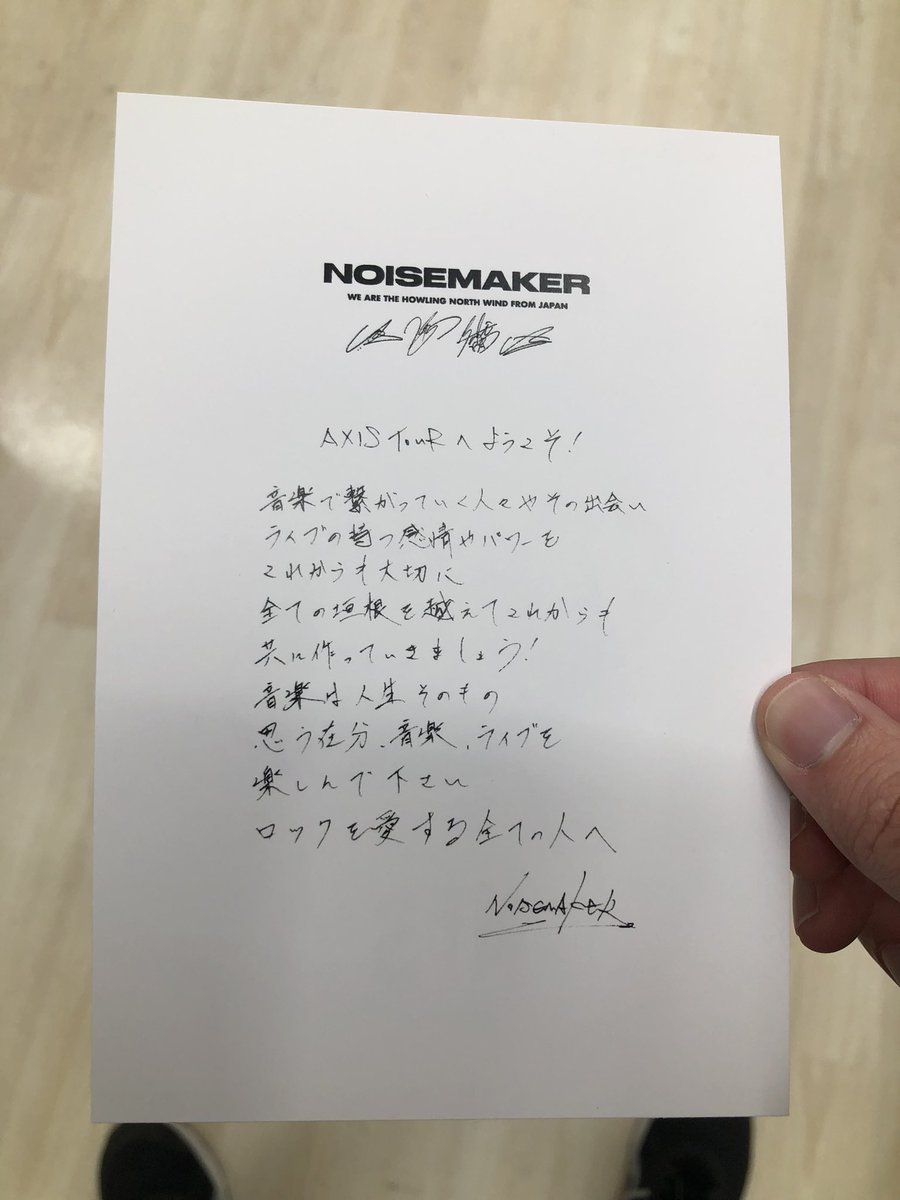 NOISEMAKER
WE ARE THE HOWLING NORTH WIND FROM JAPAN
AXIS TOUR へようこそ!
音楽で繋がっていく人々やその出会い
ライブの持つ感情やパワーを
これからも大切に
全ての垣根を越えてこれからも
共に作っていきましょう!
音楽は人生そのもの
思う存分、音楽、ライブを
楽しんで下さい
ロックを愛する全ての人へ
NOISEMAKER